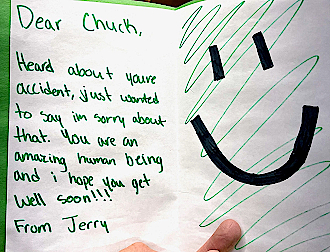 Dear Chuck,
Heard about youre
accident, just wanted
to say im sorry about
that. You are an
amazing human being
and i hope you get
well soon!!!
From Jerry